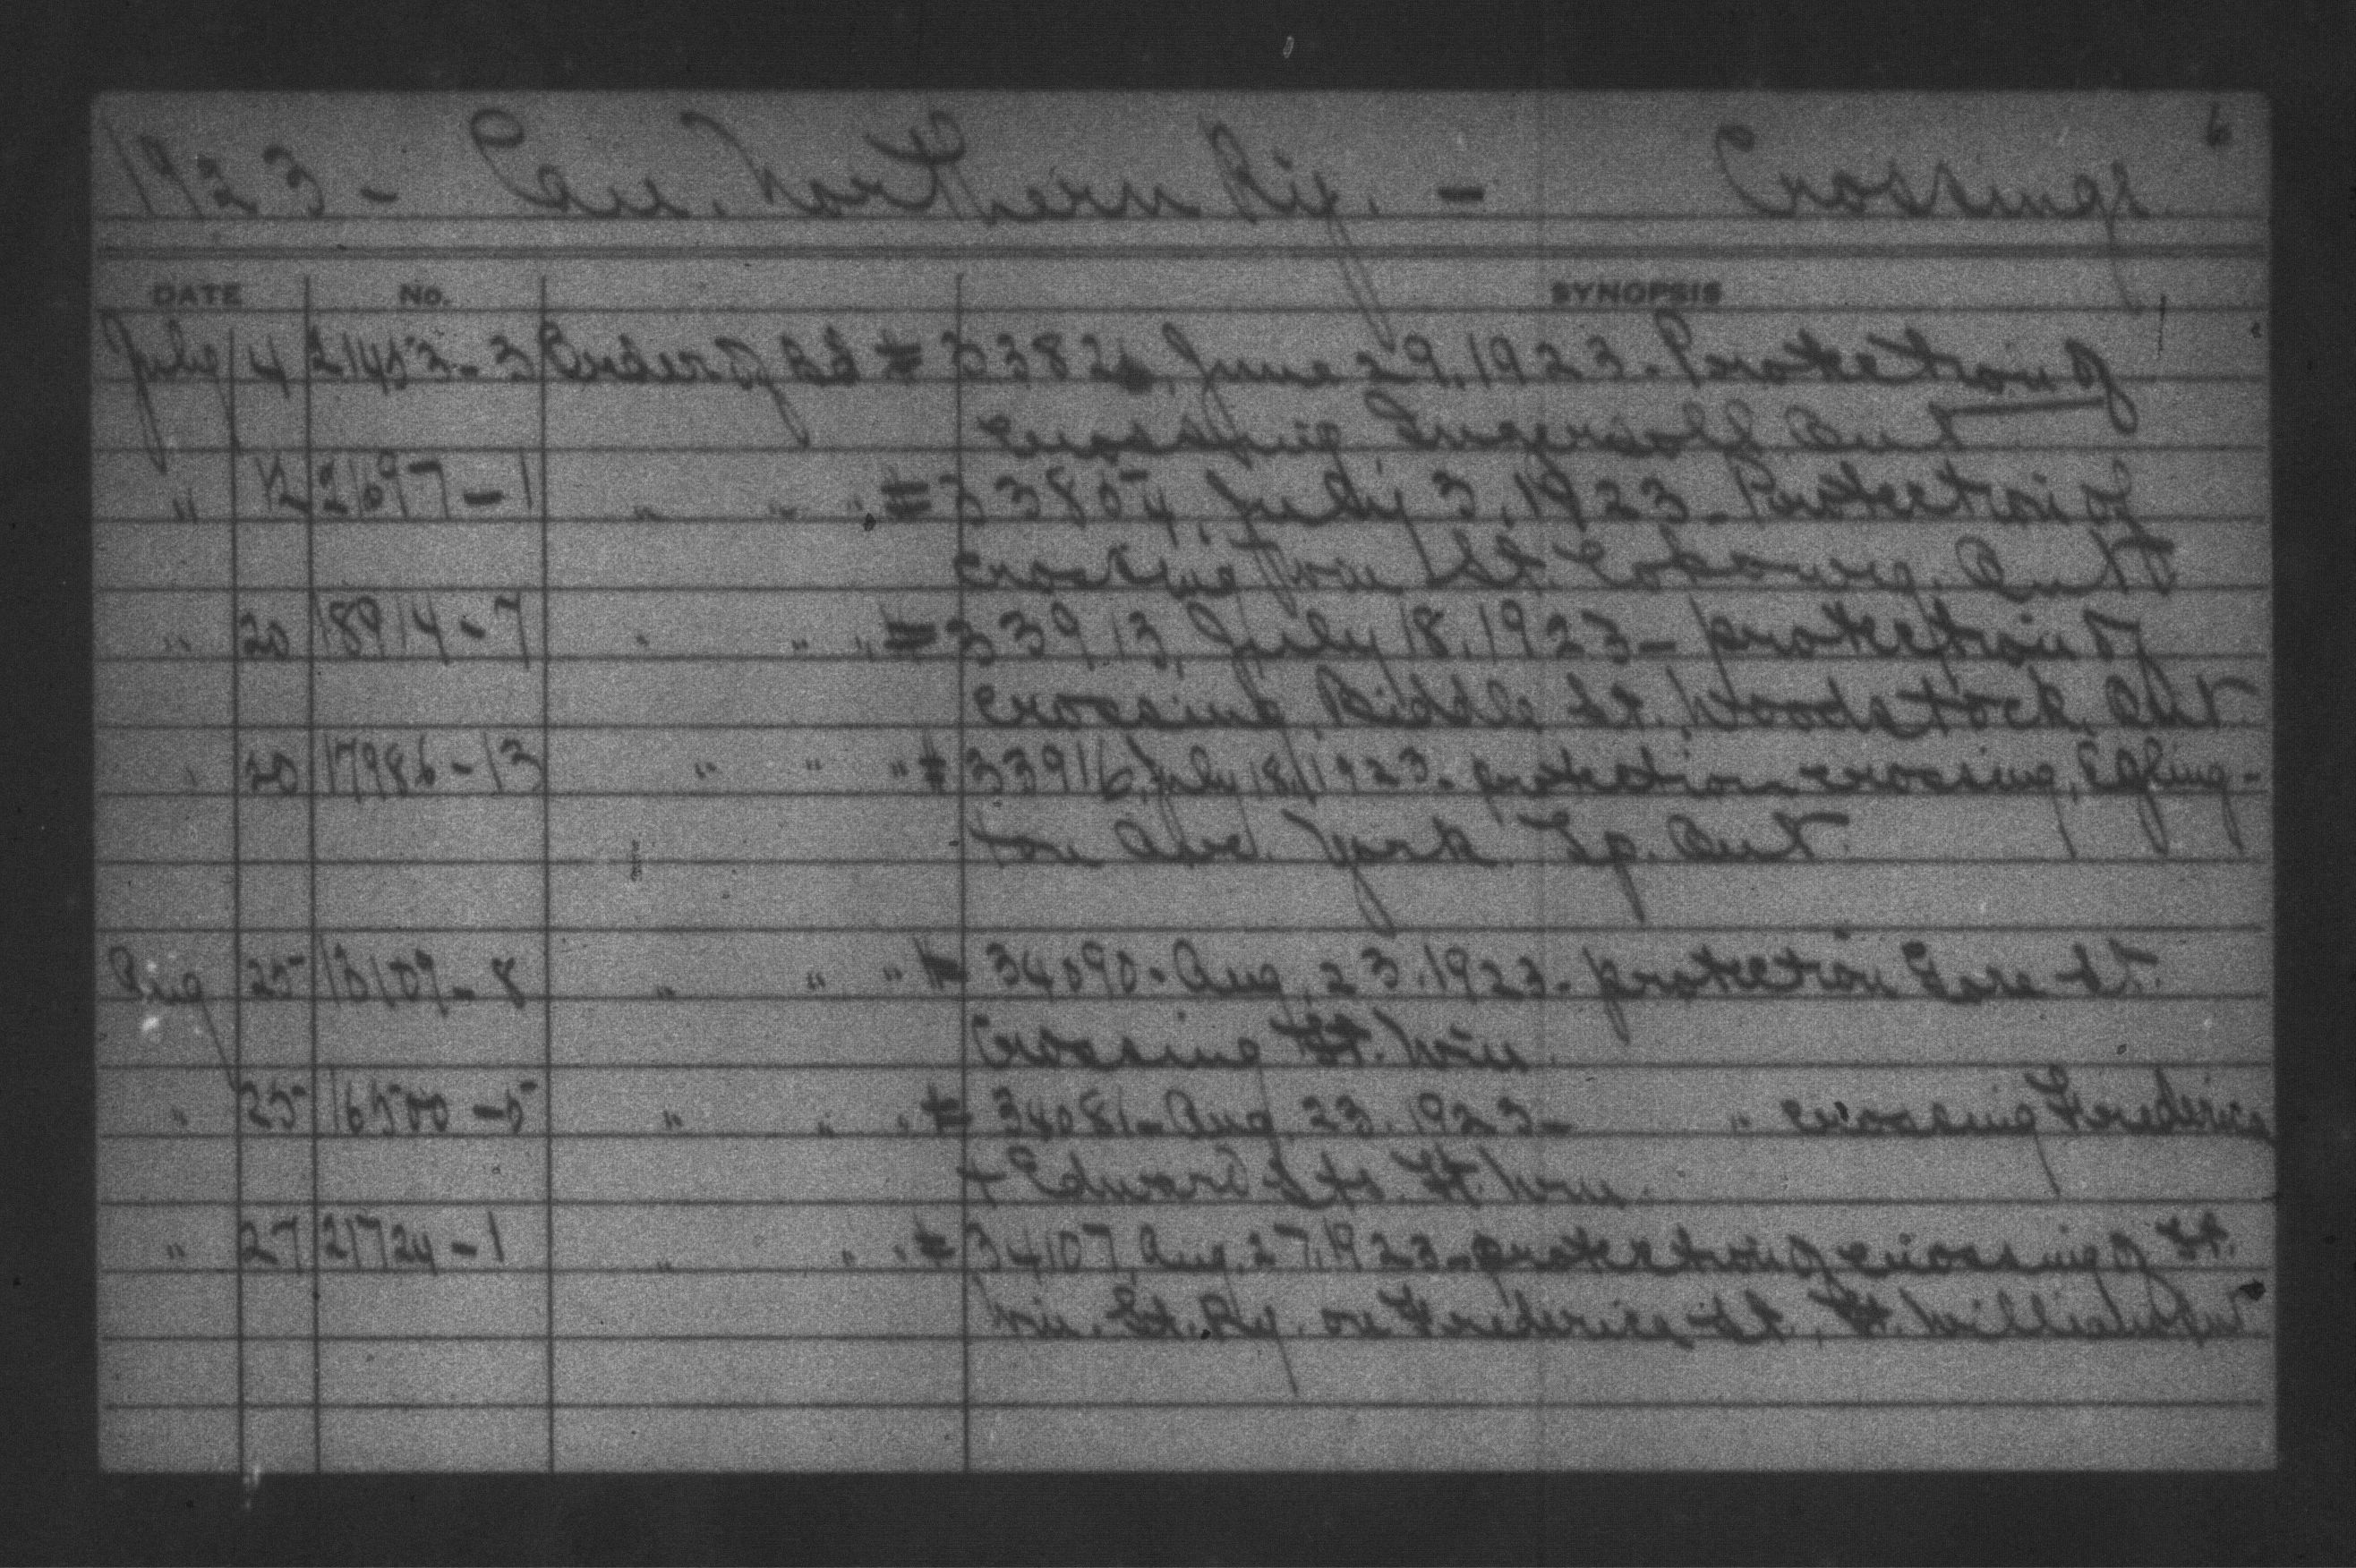 6
1923 - Can. Northern Ry. - Crossings
DATE No. SYNOPSIS
July 4 21453-3 Order of Bd # 3382 June 29, 1923 - Protection of
crossing Ingersoll Ont
" 12 21697-1 " " " # 33854, July 3, 1923 - Protection of
crossing St. Cobourg, Ont
" 20 18914-7 " " " # 33913, July 18, 1923 - protection of
crossing Riddle St. Woodstock, Ont.
" 20 17986-13 " " " # 33916, July 18, 1923 - protection crossing, Egling-
ton Ave. York Tp. Ont.
Aug 25 13109-8 " " " # 34090 - Aug. 23, 1923 - protection St.
Crossing Ft. Wm.
" 25 16500-5 " " " # 34081 - Aug. 23, 1923 - " crossing Frederica
+ Edward Sts. Ft. Wm.
" 27 21724-1 " " " # 34107, Aug. 27, 1923 - protection of crossing of Ft.
Wm. St. Ry. on Frederica St. Ft. William Ont